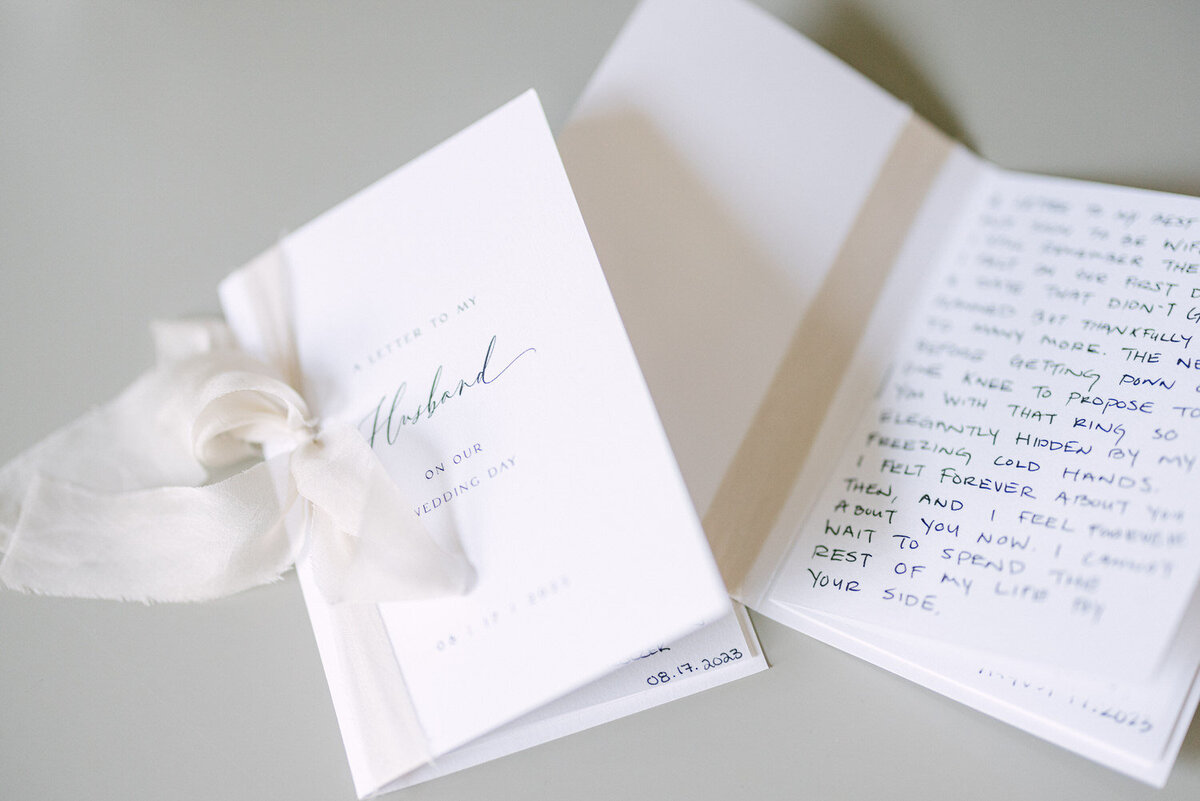 A LETTER TO MY
Husband
ON OUR
WEDDING DAY
08 / 17 / 2023
08.17.2023
A LETTER TO MY BEST
TO BE WIFE
I STILL REMEMBER THE
I FELT ON OUR FIRST
THAT DIDN'T
BUT THANKFULLY
TO MANY MORE. THE
BEFORE GETTING DOWN
ONE KNEE TO PROPOSE TO
YOU WITH THAT RING SO
ELEGANTLY HIDDEN BY MY
FREEZING COLD HANDS.
I FELT FOREVER ABOUT YOU
THEN, AND I FEEL FOREVER
ABOUT YOU NOW. I CANNOT
WAIT TO SPEND THE
REST OF MY LIFE BY
YOUR SIDE.